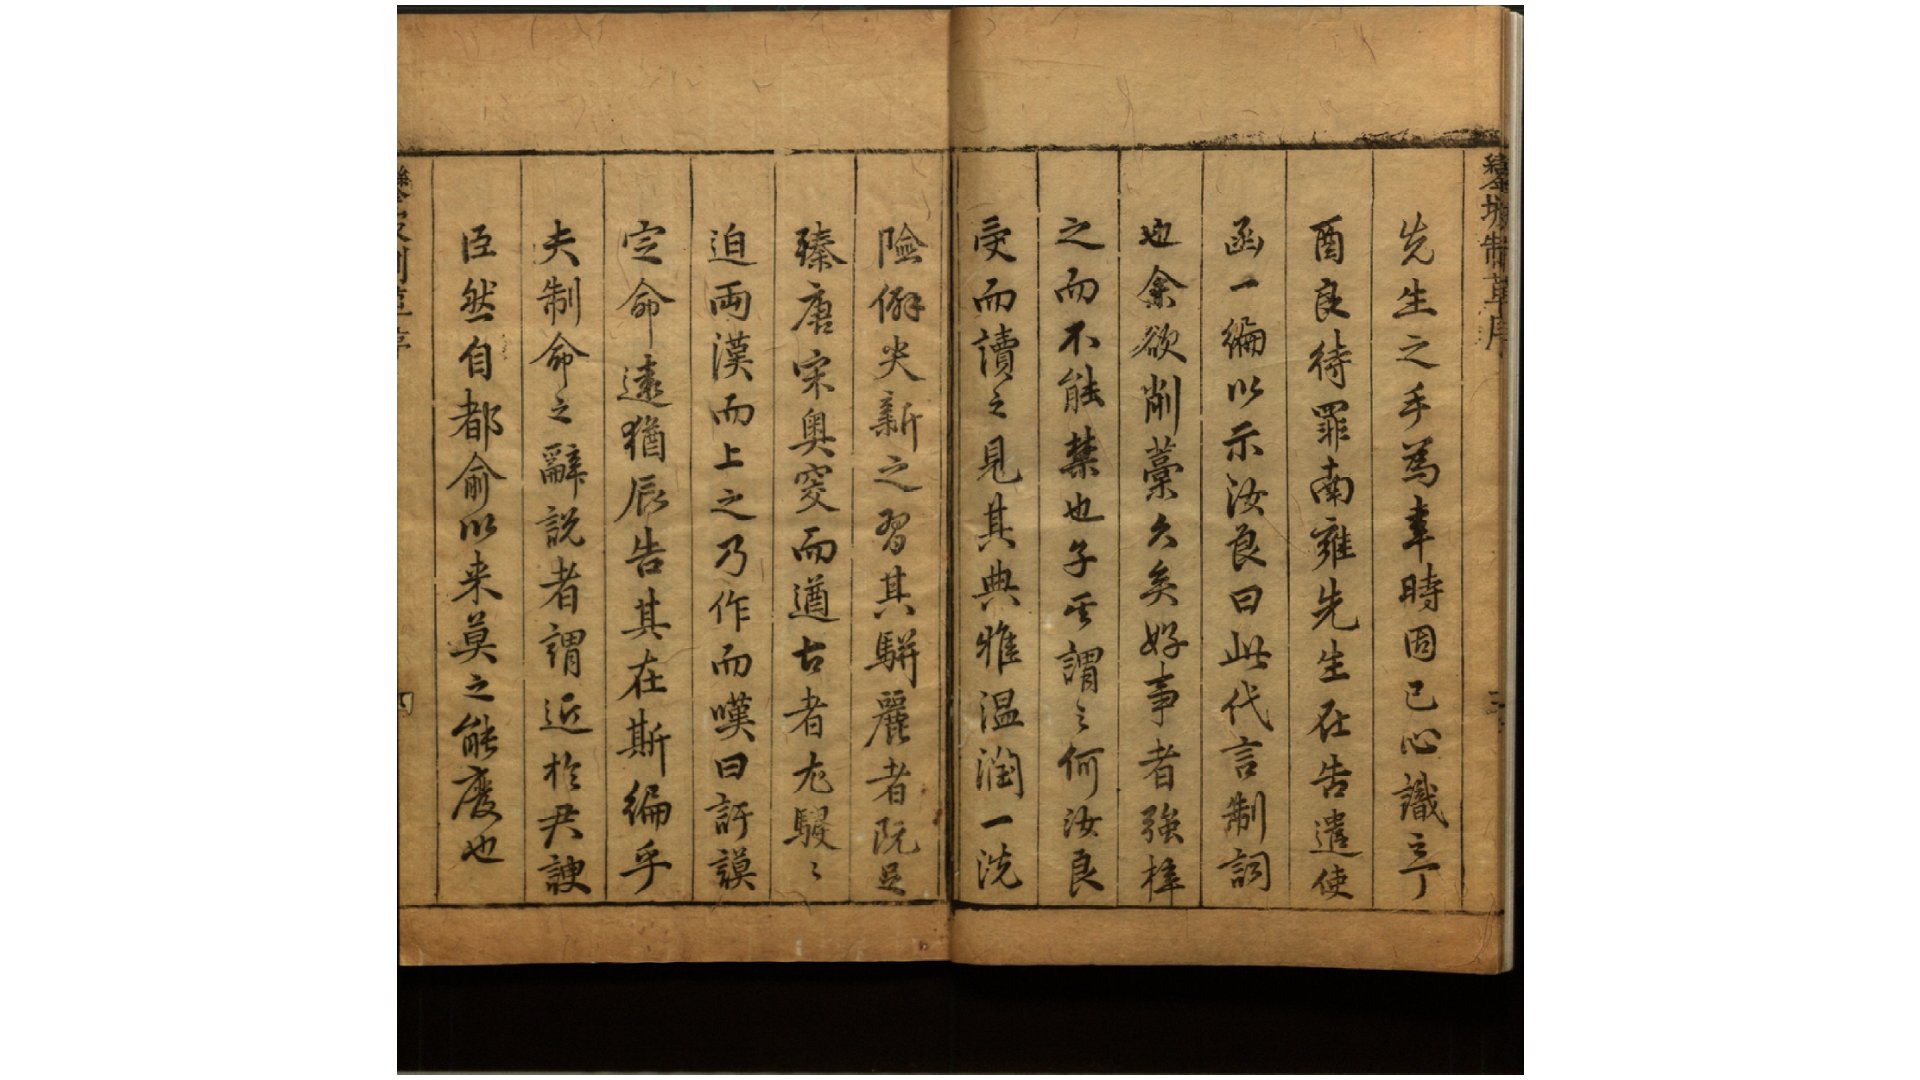 鑾坡制草序
先生之手為幸時固已心識之丁
酉良待罪南雍先生在告遣使
函一編以示汝良曰此代言制詞
也余欲削藁久矣好事者強梓
之而不能禁也子其謂之何汝良
受而讀之見其典雅温潤一洗
險僻尖新之習其駢麗者既足
臻唐宋奥窔而遒古者尤駸〻
迫兩漢而上之乃作而嘆曰訏謨
定命遠猶辰告其在斯編乎
夫制命之辭說者謂近於尹諛
臣然自都俞以来莫之能廢也